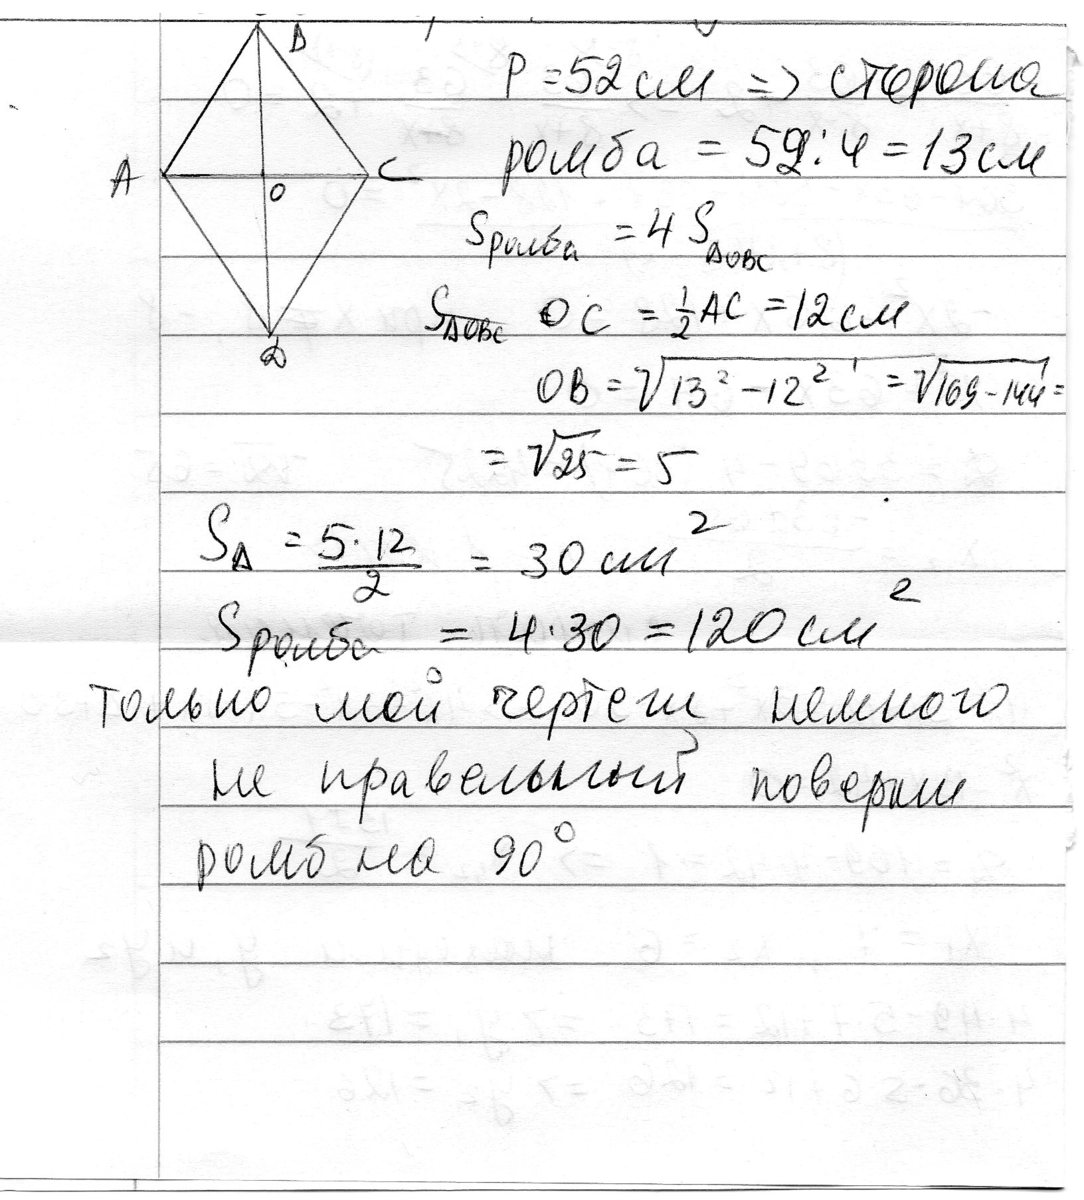 B
A
C
O
D
P = 52 см => сторона
ромба = 52 : 4 = 13 см
Sромба = 4 S△OBC
S△OBC OC = 1/2 AC = 12 см
OB = √13² - 12² = √169 - 144 =
= √25 = 5
S△ = 5 · 12 / 2 = 30 см²
Sромба = 4 · 30 = 120 см²
только мой чертеж немного
не правельный поверни
ромб на 90°